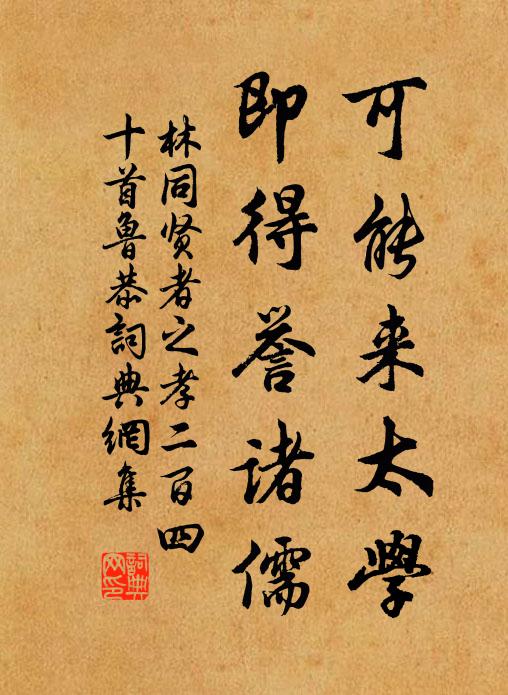 可能来太學
即得誉諸儒
林同贤者之孝二百四
十首魯恭詞典網集
詞典网印